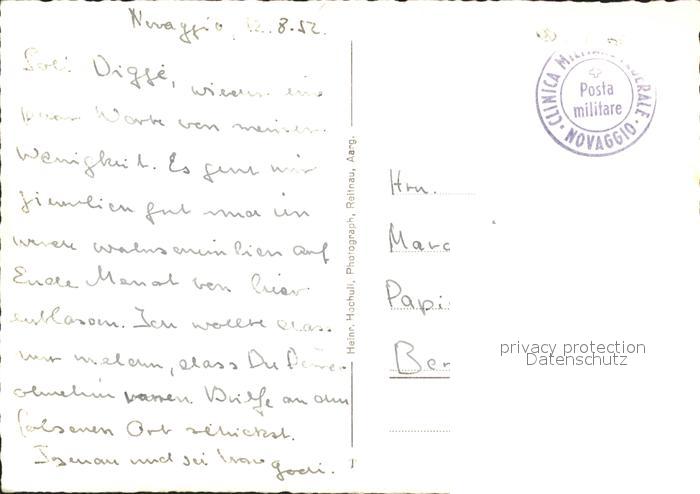 Novaggio, 12.8.52.
Sali Viggi, wieder ein
paar Worte von meiner
Wenigkeit. Es geht mir
ziemlich gut und ich
werde wahrscheinlich auf
Ende Monat von hier
entlassen. Ich wollte dass
nur melden, dass Du Deine
ohnehin Briefe an den
falschen Ort schickst.
und sei
Heinr. Hochuli, Photograph, Reitnau, Aarg.
CLINICA MILITARE FEDERALE
Posta
militare
· NOVAGGIO ·
Hrn.
Marc
Papi
Ber
privacy protection
Datenschutz